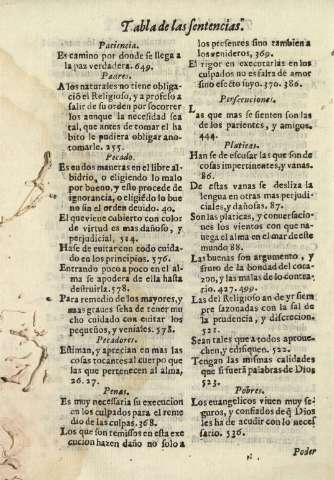 Tabla de las sentencias.
Paciencia.
Es camino por donde se llega a
la paz verdadera. 649.
Padres.
A los naturales no tiene obliga-
ció el Religioso, ya professo a
salir de su orden por socorrer
los aunque la necesidad sea
tal, que antes de tomar el ha
bito le pudiera obligar ano
tomarle. 255.
Pecado.
Es en dos maneras en el libre al-
bidrio, o eligiendo lo malo
por bueno, y esto procede de
ignorancia, o eligiédo lo bue
no sin el orden deuido. 40.
El que viene cubierto con color
de virtud es mas dañoso, y
perjudicial. 514.
Hase de euitar con todo cuida-
do en los principios. 576.
Entrando poco a poco en el al-
ma se apodera de ella hasta
destruirla. 578.
Para remedio de los mayores, y
mas graues seha de tener mu
cho cuidado con euitar los
pequeños, y veniales. 578.
Pecadores.
Estiman, y aprecian en mas las
cosas tocantes al cuerpo que
las que pertenecen al alma.
26. 27.
Penas.
Es muy necessaria su execucion
en los culpados para el reme
dio de las culpas. 368.
Los que son remissos en esta exe
cucion hazen daño no solo a
los presentes sino tambien a
los venideros, 369.
El rigor en executarlas en los
culpados no es falta de amor
sino efecto suyo. 370. 386.
Persecuciones.
Las que mas se sienten son las
de los parientes, y amigos.
444.
Platicas.
Han se de escusar las que son de
cosas impertinentes, y vanas.
86.
De estas vanas se desliza la
lengua en otras mas perjudi-
ciales, y dañosas. 87.
Son las platicas, y conuersacio-
nes los vientos con que na-
uega el alma en el mar deeste
mundo 88.
Las buenas son argumento, y
fruto de la bondad del cora-
çon, y las malas de lo contra-
rio. 427. 499.
Las del Religioso an de yr siem
pre sazonadas con la sal de
la prudencia, y discrecion.
521.
Sean tales que a todos aproue-
chen, y edifiquen. 522.
Tengan las mismas calidades
que si fuerá palabras de Dios
523.
Pobres.
Los euangelicos viuen muy se-
guros, y confiados de q̃ Dios
les ha de acudir con lo neces
sario. 536.
Poder